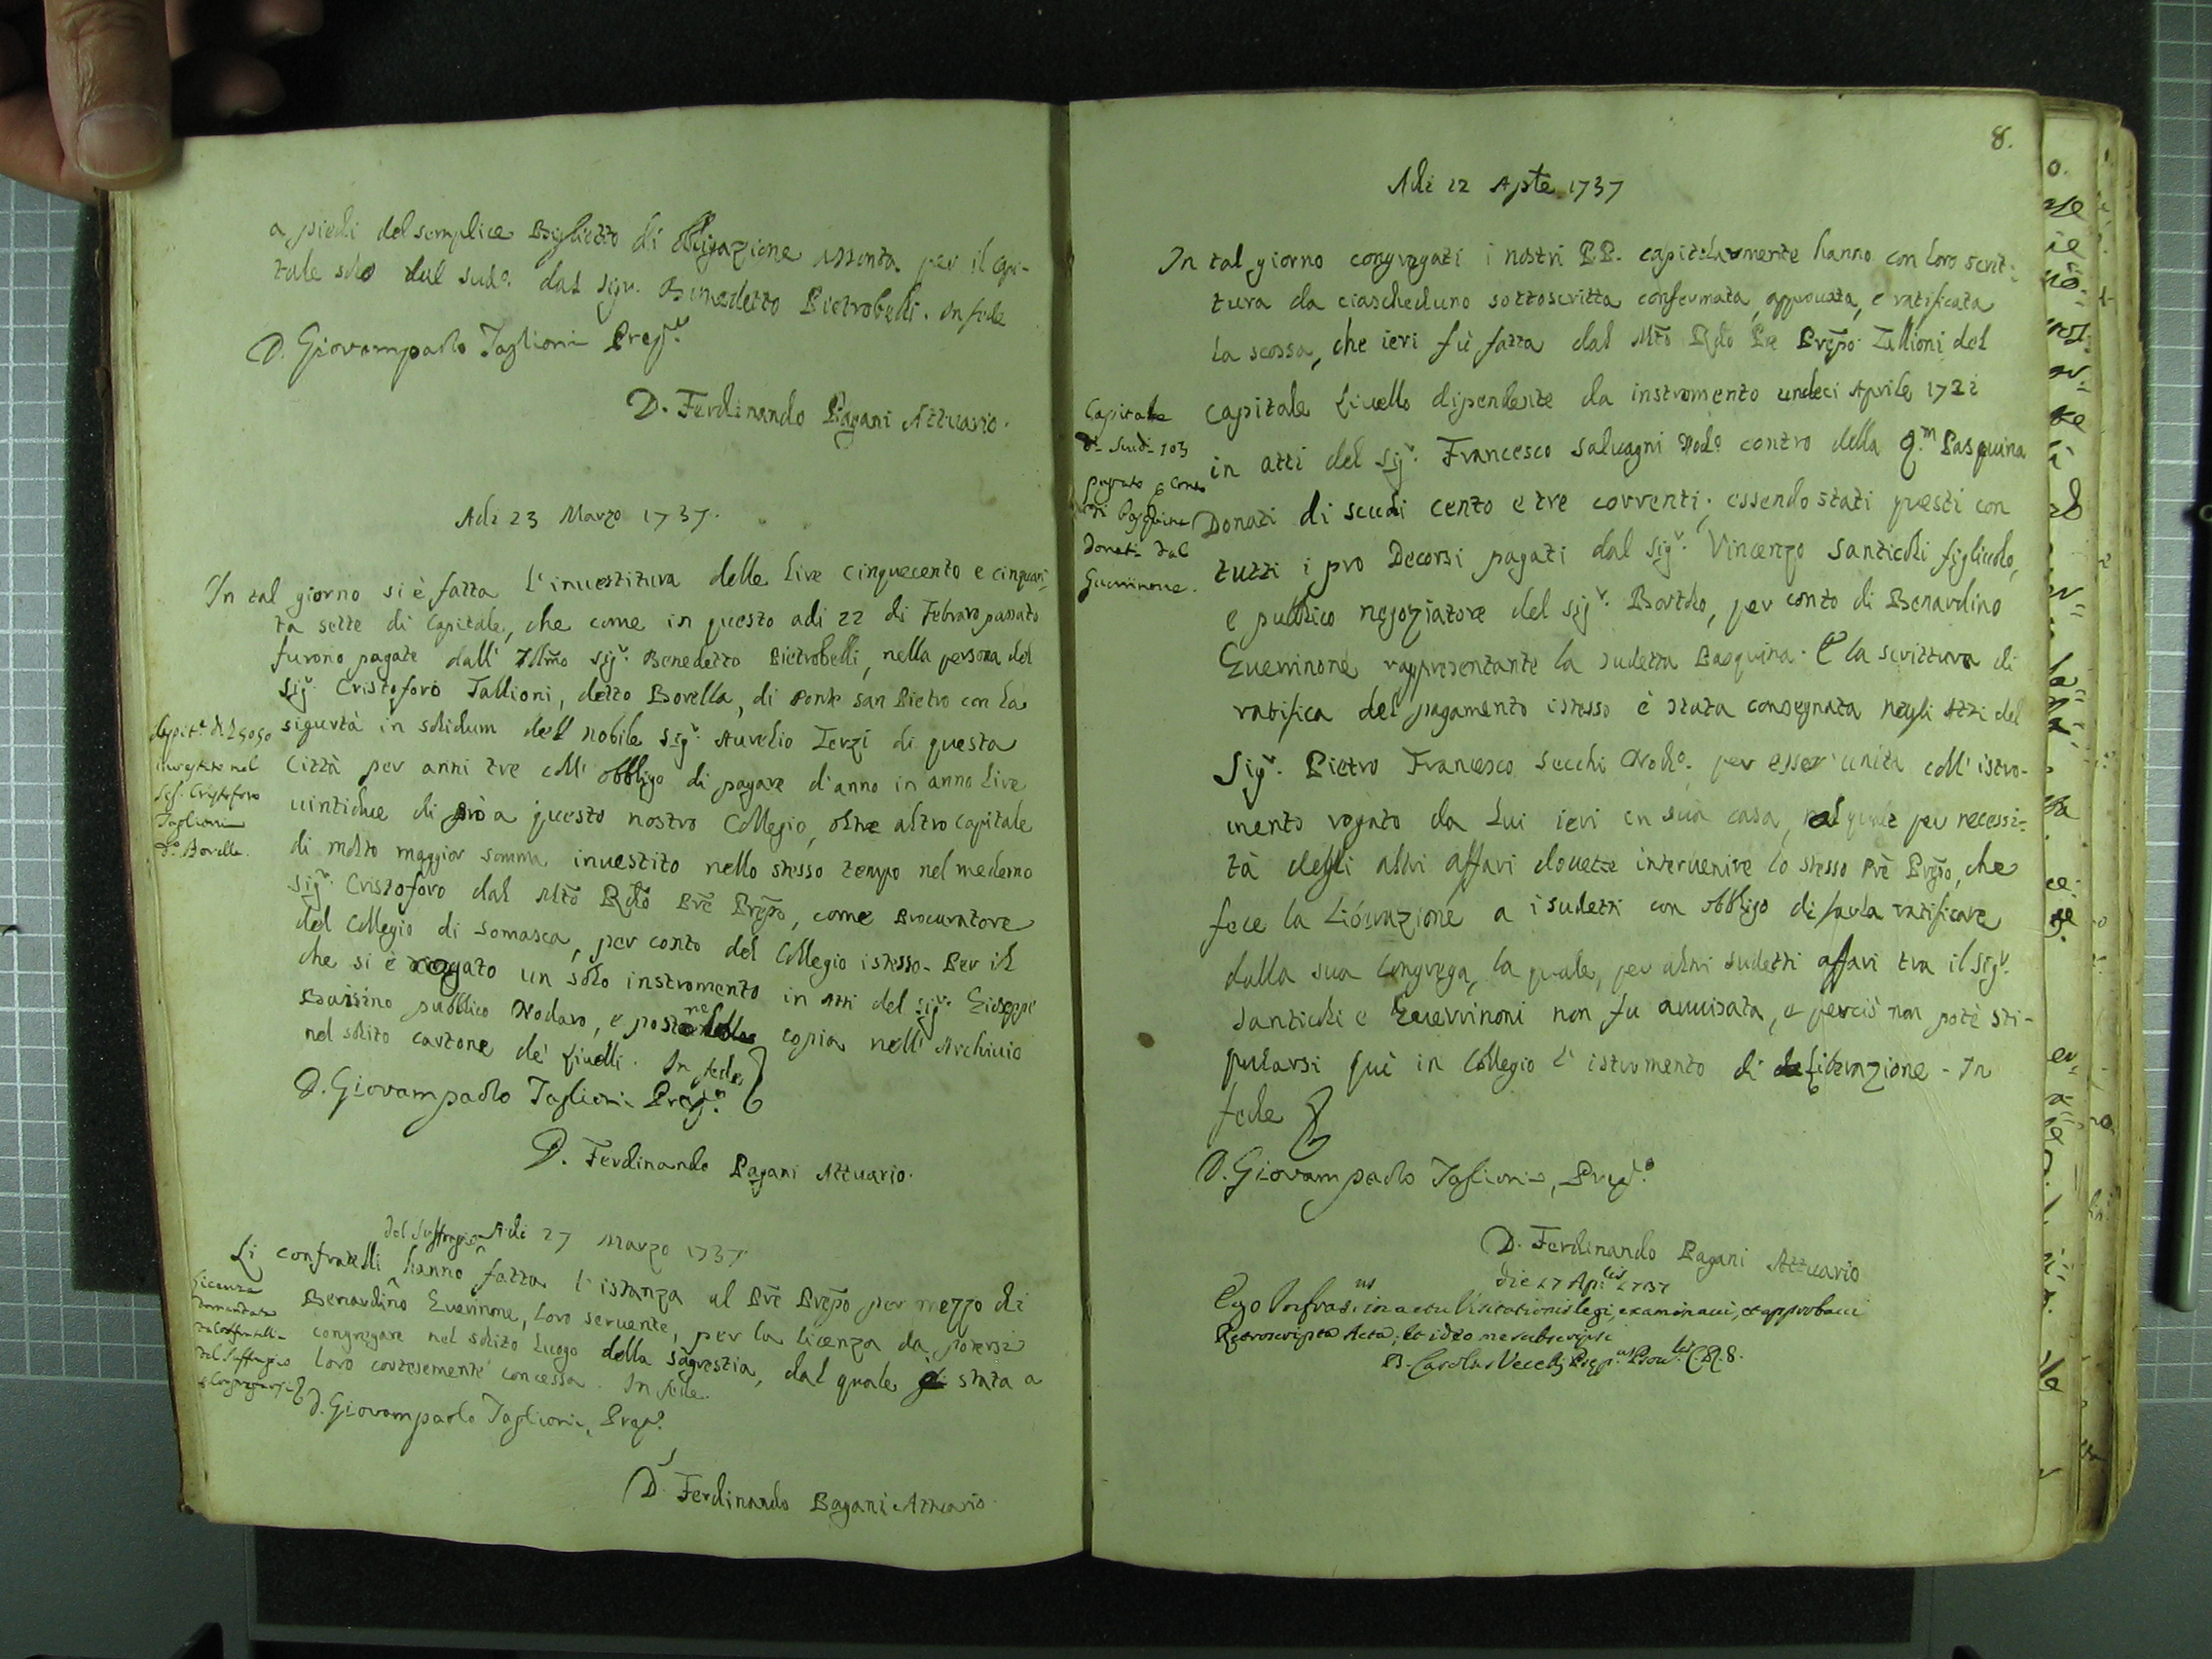 a piedi del semplice Biglietto di obligazione assonta per il capi-
tale solo dal sudo. dal Sigr. Benedetto Pietrobelli. In fede
D. Giovampaolo Taglioni Prepto
D. Ferdinando Pagani Attuario.
Adi 23 Marzo 1737.
In tal giorno si è fatta l'investitura delle Lire cinquecento e cinquan-
ta sette di Capitale, che come in questo adi 22 di Febraro passato
furono pagate dall' Illmo Sigr. Benedetto Pietrobelli, nella persona del
Sigr. Cristoforo Tallioni, detto Borella, di Ponte San Pietro con la
sigurtà in solidum dell nobile Sigr. Aurelio Terzi di questa
Città per anni tre coll' obbligo di pagare d'anno in anno Lire
uintidue di prò a questo nostro Collegio, oltre altro capitale
di molto maggior somma inuestito nello stesso tempo nel medemo
Sigr. Cristoforo dal Mto Rdo Pre Prepo, come Procuratore
del Collegio di Somasca, per conto del Collegio istesso. Per il
che si è rogato un solo instromento in Atti del Sigr. Gioseppe
Baisino pubblico Nodaro, e postane copia nell' Archiuio
nel solito cartone de' Liuelli. In fede
D. Giovampaolo Taglioni Prepo
D. Ferdinando Pagani Attuario.
Capit.e di
inuestito nel
Sig. Cristoforo
Taglioni
do. Borella.
Adi 27 Marzo 1737
del Suffragio
Li confratelli hanno fatta l'istanza al Pre Prepo per mezzo di
Bernardino Guerinone, loro seruente, per la licenza da potersi
congregare nel solito luogo della sagrestia, dal quale è stata a
loro cortesemente concessa. In fede
D. Giovampaolo Taglioni, Prepo
D. Ferdinando Pagani Attuario
Licenza
domandata
da Confratelli
del Suffragio
8.
Adi 12 Aple 1737
In tal giorno congregati i nostri PP. capitolarmente hanno con loro scrit-
tura da ciascheduno sottoscritta confermata, approuata, e ratificata
la scossa, che ieri fù fatta dal Mto Rdo Pre Prepo Tallioni del
capitale Liuello dipendente da instromento undeci Aprile 1721
in atti del Sigr. Francesco Saluagni Nodo. contro della qm Pasquina
Donati di scudi cento e tre correnti; essendo stati questi con
tutti i pro Decorsi pagati dal Sigr. Vincenzo Santicoli figliuolo,
e publico negoziatore del Sigr. Bortolo, per conto di Benardino
Guerrinone rappresentante la sudetta Pasquina. E la scrittura di
ratifica del pagamento istesso è stata consegnata negli Atti del
Sigr. Pietro Francesco Secchi Nodo. per esser' unita coll' istro-
mento rogato da Lui ieri in sua casa, nel quale per necessi-
tà degli altri affari douette interuenire lo stesso Pre Prepo, che
fece la Liberazione a i sudetti con obbligo di farla ratificare
dalla sua Congrega, la quale, per altri sudetti affari tra il Sigr.
Santicoli e Guerrinoni non fu auuisata, e perciò non potè sti-
pularsi qui in Collegio l' istromento di Liberazione. In
fede
D. Giovampaolo Taglioni, Prepo
D. Ferdinando Pagani Attuario
Capitale
di Scudi 103
pagato p conto
di Pasquina
Donati dal
Guerrinone.
die 27 Aprilis 1737
Ego Infrasius in actu Visitationis legi, examinaui, et approbaui
Retroscripta Acta; et ideo me subscripsi
D. Carolus Vecelj Prepus Proulis C.R.S.